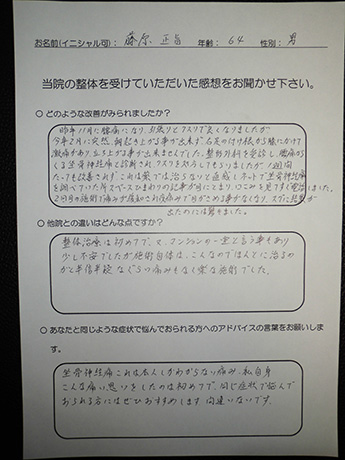 お名前(イニシャル可): 藤原 正 年齢: 64 性別: 男
当院の整体を受けていただいた感想をお聞かせ下さい。
○ どのような改善がみられましたか?
昨年11月に腰痛になりお灸りとクスリで良くなりましたが
今年2月に突然、朝起き上がる事が出来ず、右足の付け根から膝にかけて
激痛があり立ち上がる事が出来ませんでした。整形外科を受診し、腰痛から
くる坐骨神経痛と診断され、クスリを処方してもらいましたが1週間
たっても改善されず、これは薬では治らないと直感しネットで坐骨神経痛
を調べていた所でスペースひまわりの記事が目にとまり、口コミを見てすぐ電話しました。
2回目の施術で痛みが緩和され夜痛みで目がさめる事がなくなり、スグに結果が
出たのには驚きました。
○ 他院との違いはどんな点ですか?
整体治療は初めてで、又、マンションの一室と言う事もあり
少し不安でしたが施術自体は、こんなのでほんとに治るの
かと半信半疑なぐらい痛みもなく楽な施術でした。
○ あなたと同じような症状で悩んでおられる方へのアドバイスの言葉をお願いしま
す。
坐骨神経痛これは本人しかわからない痛み、私自身
こんな痛い思いをしたのは初めてで、同じ症状で悩んで
おられる方にはぜひおすすめします間違いないです。